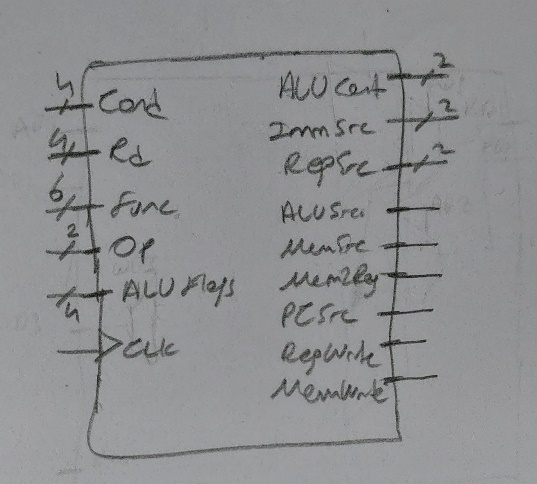 4 Cond
4 Rd
6 Func
2 OP
4 ALUFlags
CLK
ALUCont 2
ImmSrc 2
RegSrc 2
ALUSrc
MemSrc
Mem2Reg
PCSrc
RegWrite
MemWrite